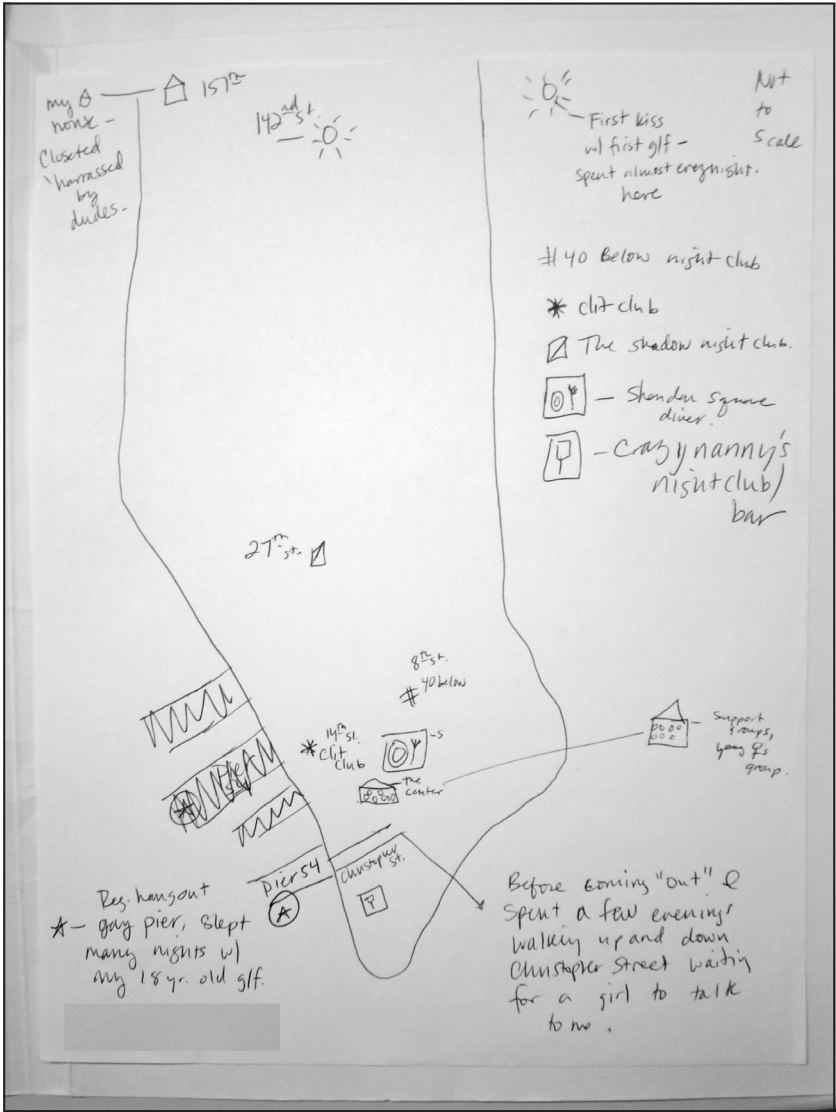 my
home -
Closeted
harrassed
by
dudes-
157th
142nd St.
First kiss
w/ first g/f -
spent almost everynight.
here
Not
to
Scale
#40 Below night club
* clit club
The shadow night club.
- Sheridan Square
diner.
- Crazy nanny's
nightclub/
bar
27th St.
8th St.
# 40 below
14th St.
* Clit
Club
-S
the
center
- Support
groups,
young
group.
Pier 54
Christopher
St.
A
Reg. hangout
gay pier, slept
many nights w/
my 18 yr. old g/f.
Before coming "out" I
Spent a few evenings
walking up and down
Christopher Street waiting
for a girl to talk
to me.